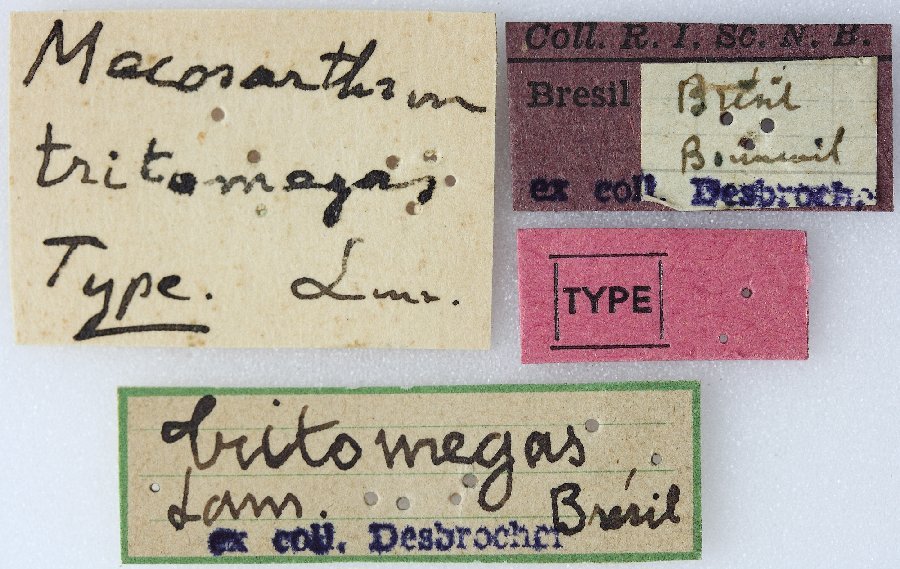 Macosarthron
tritomegas
Type. Lam.
Coll. R. I. Sc. N. B.
Bresil
Brésil
ex coll. Desbrocher
TYPE
tritomegas
Lam. Brésil
ex coll. Desbrocher